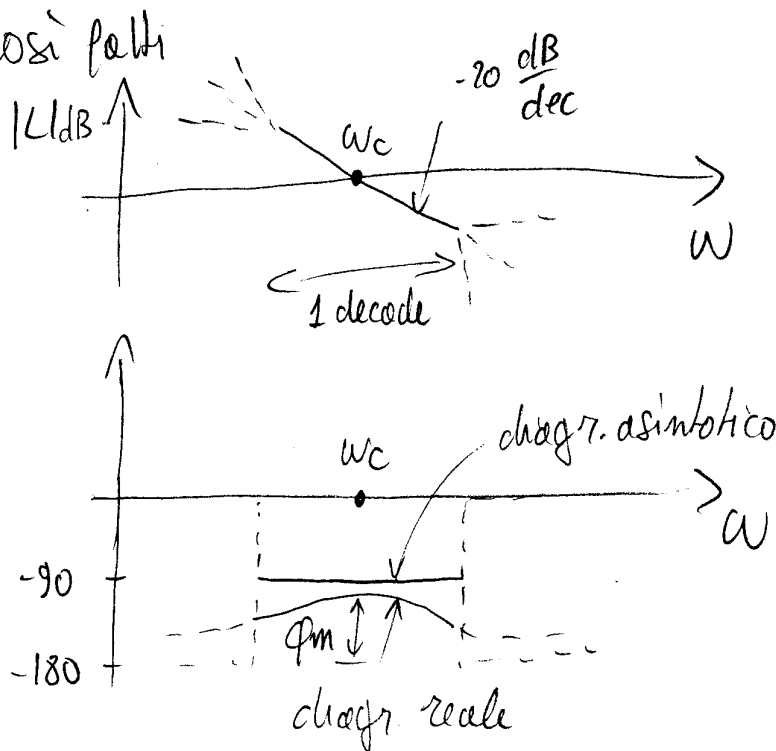 così fatti
|L|dB
-20 dB/dec
ωc
ω
1 decade
diagr. asintotico
ωc
ω
-90
φm
-180
diagr. reale